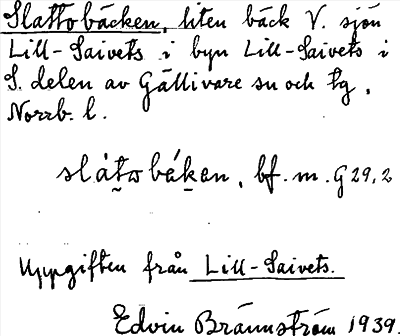 Slattobäcken, liten bäck V. sjön
Lill-Saivets i byn Lill-Saivets i
S. delen av Gällivare sn och tg,
Norrb. l.
slåtobákan, bf. m. G 29,2
Uppgiften från Lill-Saivets.
Edvin Brännström 1939.